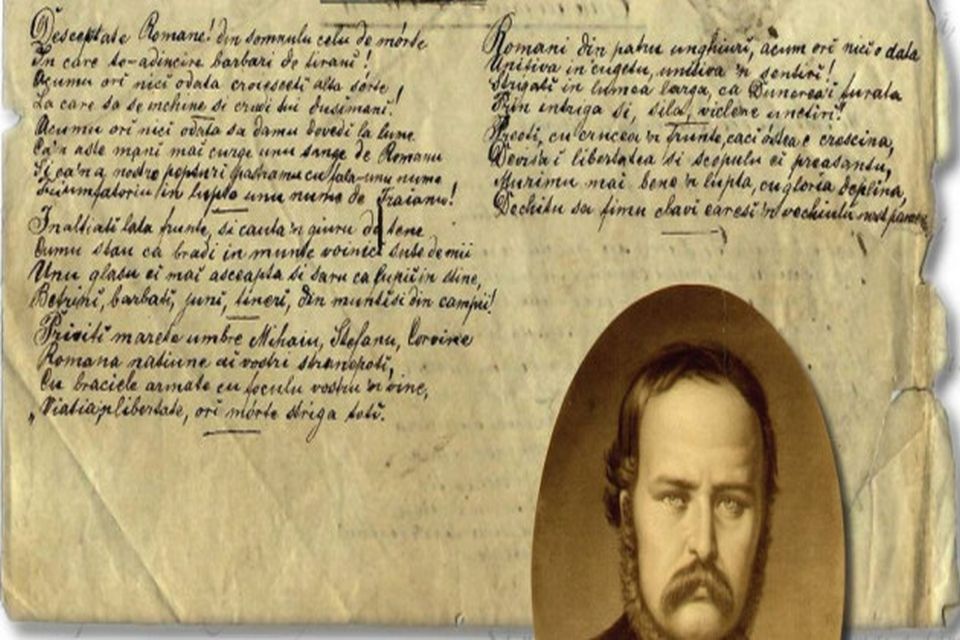 Desceptate Romane! din somnulu celu de mórte
In care te-adincire barbari de tirani!
Acumu ori nici odata croiesceti alta sórte
La care sa se inchine si crudi tui dusimani!
Acumu ori nici odata sa damu dovedi la lume
Ca'n aste mani mai curge unu sange de Romanu
Si ca'n a nostre pepturi pastramu cu fala-unu nume
Triumfatoriu in lupte unu nume de Traianu!
Inaltiati lata frunte, si cauta'n giuru de tene
Cumu stau ca bradi in munte voinici sute de mii
Unu glasu ei mai asceapta si saru ca lupii in stine,
Betrini, barbati, juni, tineri, din munti si din campii!
Priviti marete umbre Mihaiu, Stefanu, Corvine
Romana natiune ai vostri stranepoti,
Cu braciele armate cu foculu vostru 'n vine,
"Viatia'n libertate, ori mórte striga toti.
Romani din patru unghiuri, acum ori nici o data
Unitiva in cugetu, unitiva 'n sentiri!
Strigati in lumea larga, ca Dunerea-i furata
Prin intriga si, sila, viclene unctiri!
Preoti, cu crucea 'n frunte, caci óstea e crescina,
Devisa-i libertatea si scopulu ei preasantu,
Murimu mai bene 'n lupta, cu gloria deplina,
Dechitu sa fimu clavi earesi 'n vechiulu nost